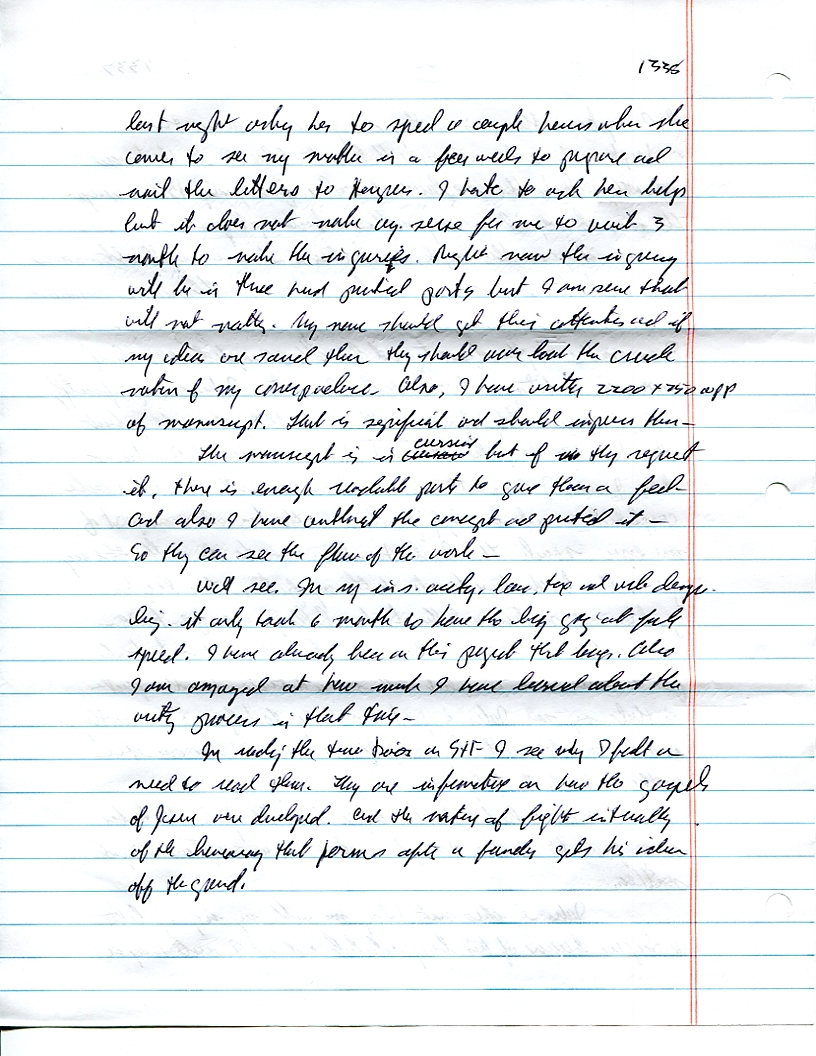 1335
last night asking her to spend a couple hours when she
comes to see my mother in a few weeks to prepare and
mail the letters to I hate to ask her help
but it does not make any sense for me to wait 3
month to make the inquiries. Right now the inquiry
will be in three hand printed parts but I am sure that
will not matter. My name should get this attention and if
my ideas are sound then they should over look the crude
nature of my correspondence. Also, I have written 2200 + 250 wpp
of manuscript. That is significant and should impress them—
The manuscript is in cursive but if they request
it, there is enough readable parts to give them a feel
and also I have outlined the concept and printed it —
So they can see the flow of the work —
We'll see. In my ins. law, tax and
it only took 6 month to have the going at full
speed. I have already been on this project that long. Also
I am amazed at how much I have learned about the
writing process in that time—
In reading the two on I see why I felt a
need to read them. They are informative on how the gospels
of Jesus were developed. and the nature of fight
of the hierarchy that forms after a founder gets his ideas
off the ground.